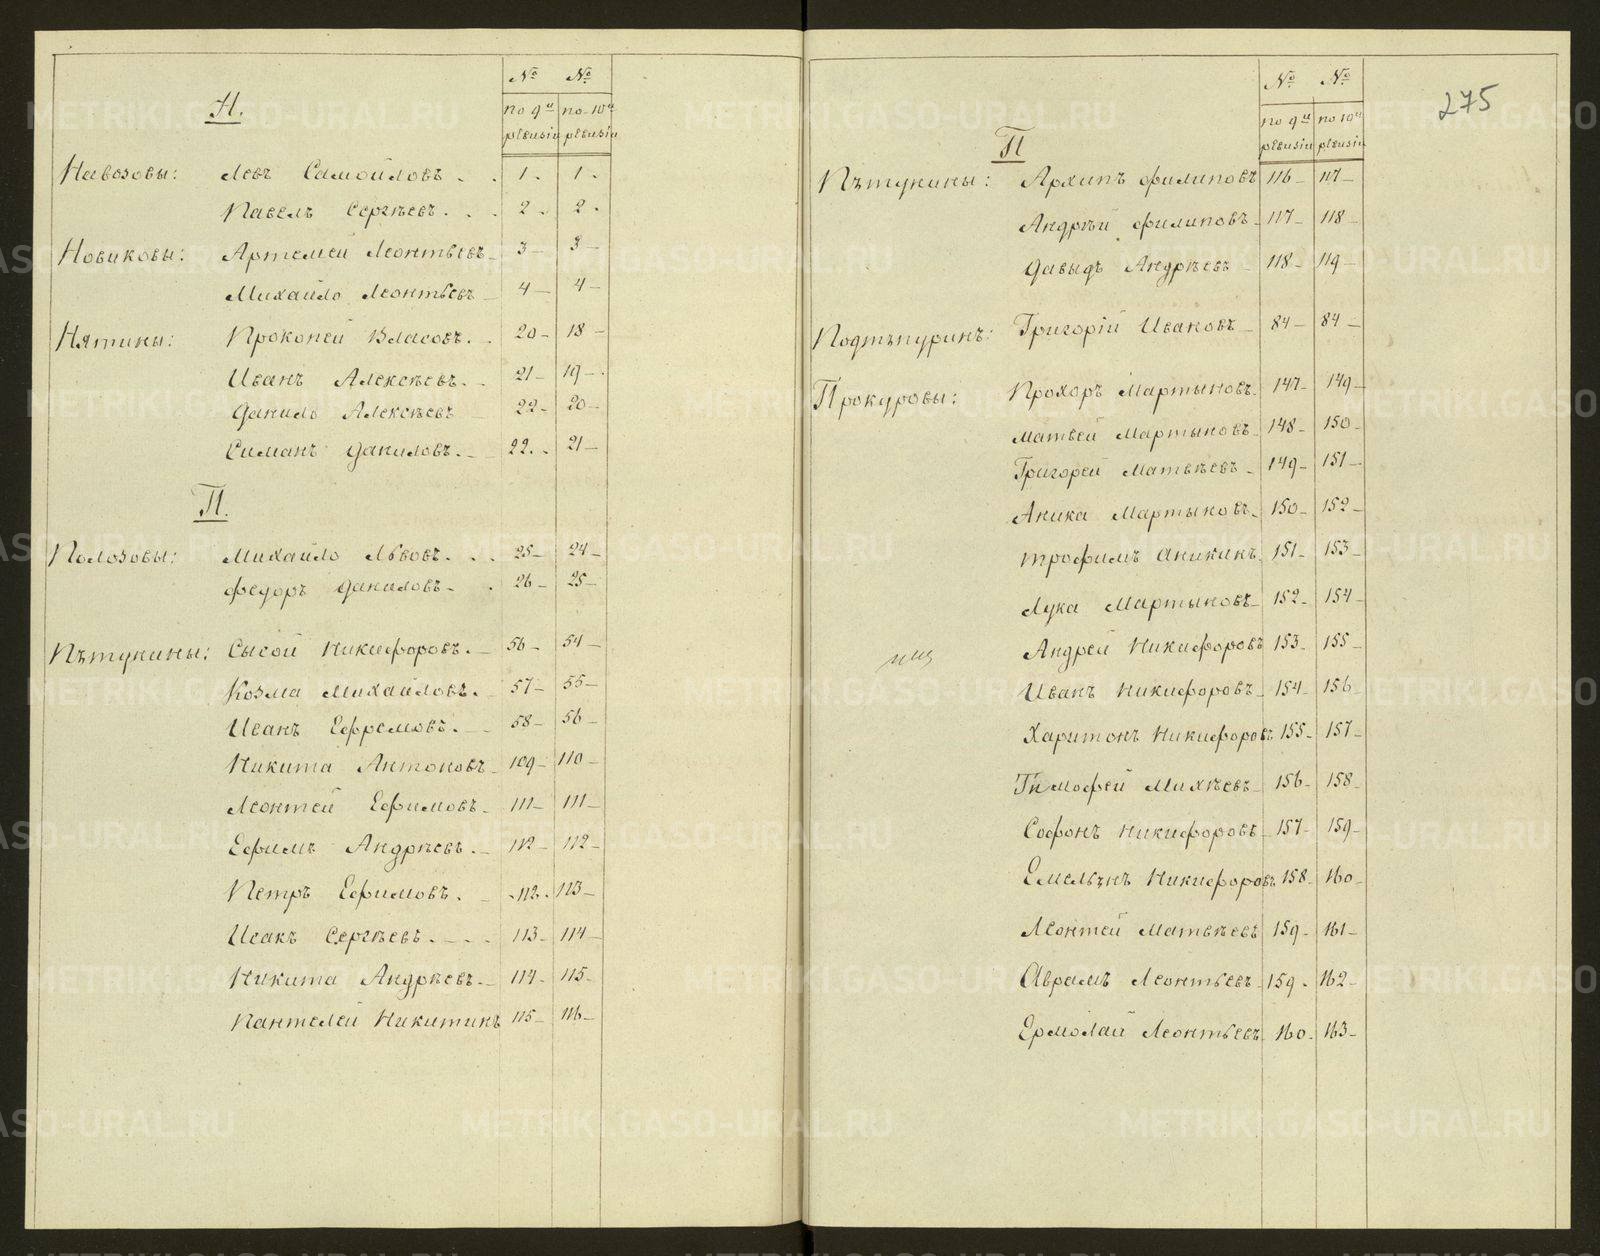 Н.
№ №
по 9й по 10й
ревизіи ревизіи
Навозовы: Левъ Самойловъ 1. 1.
Павелъ Сергѣевъ 2. 2.
Новиковы: Артемей Леонтьевъ 3 3
Михайло Леонтьевъ 4 4
Нятины: Прокопей Власовъ 20 18
Иванъ Алексѣевъ 21 19
Данило Алексѣевъ 22 20
Симанъ Даниловъ 22 21
П.
Полозовы: Михайло Львовъ 25 24
Федоръ Даниловъ 26 25
Пѣтухины: Сысой Никифоровъ 56 54
Козма Михайловъ 57 55
Иванъ Ефремовъ 58 56
Никита Антоновъ 109 110
Леонтей Ефимовъ 111 111
Ефимъ Андрѣевъ 112 112
Петръ Ефимовъ 112 113
Исакъ Сергѣевъ 113 114
Никита Андрѣевъ 114 115
Пантелей Никитинъ 115 116
275
П
№ №
по 9й по 10й
ревизіи ревизіи
Пѣтухины: Архипъ Филиповъ 116 117
Андрѣй Филиповъ 117 118
Давыдъ Андрѣевъ 118 119
Григорій Ивановъ 84 84
Прокуровы: Прохоръ Мартыновъ 147 149
Матвей Мартыновъ 148 150
Григорей Матвѣевъ 149 151
Аника Мартыновъ 150 152
Трофимъ Аникинъ 151 153
Лука Мартыновъ 152 154
Андрей Никифоровъ 153 155
Иванъ Никифоровъ 154 156
Харитонъ Никифоровъ 155 157
Тимофей Михѣевъ 156 158
Софонъ Никифоровъ 157 159
Емельянъ Никифоровъ 158 160
Леонтей Матвѣевъ 159 161
Аврамъ Леонтьевъ 159 162
Ермолай Леонтьевъ 160 163
METRIKI.GASO-URAL.RU